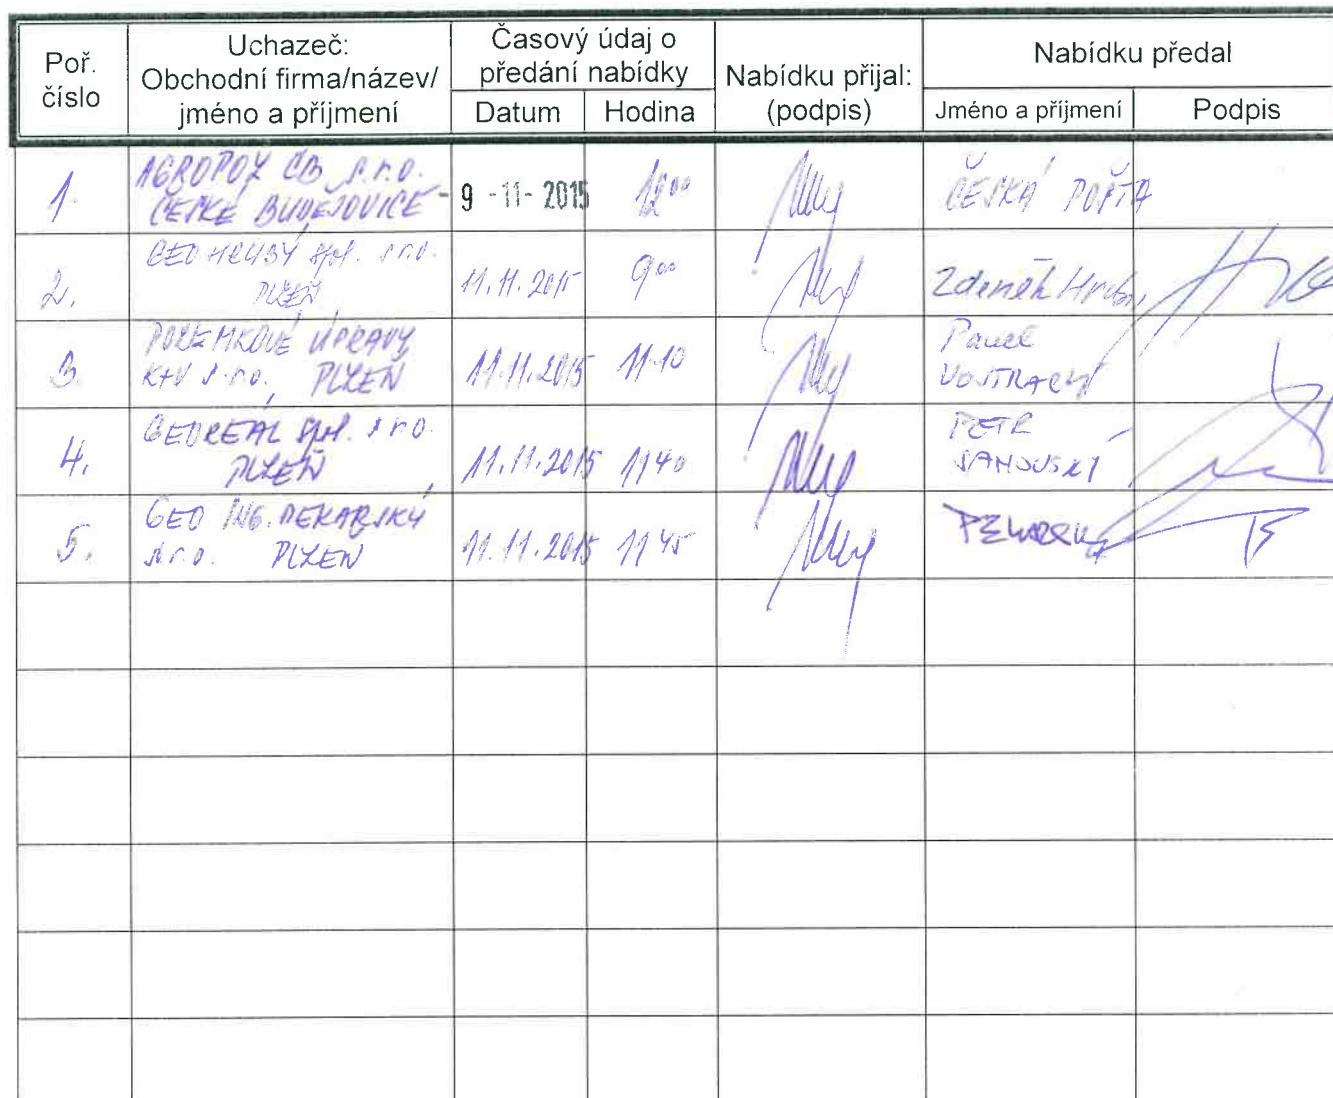 Poř. číslo
Uchazeč:
Obchodní firma/název/
jméno a příjmení
Časový údaj o
předání nabídky
Datum Hodina
Nabídku přijal:
(podpis)
Nabídku předal
Jméno a příjmení Podpis
1. AGROPOZ ČB s.r.o.
ČESKÉ BUDĚJOVICE - 9 -11- 2015 12⁰⁰ ČESKÁ POŠTA
2. GEO HRUBÝ spol. s r.o.
PLZEŇ 11.11.2015 9⁰⁰ Zdeněk
3. POZEMKOVÉ ÚPRAVY
K+V s.r.o., PLZEŇ 11.11.2015 11.10 Pavel
4. GEOREAL spol. s r.o.
PLZEŇ 11.11.2015 11⁴⁰ PETR
5. GEO ING. PEKAŘSKÝ
s.r.o. PLZEŇ 11.11.2015 11⁴⁵